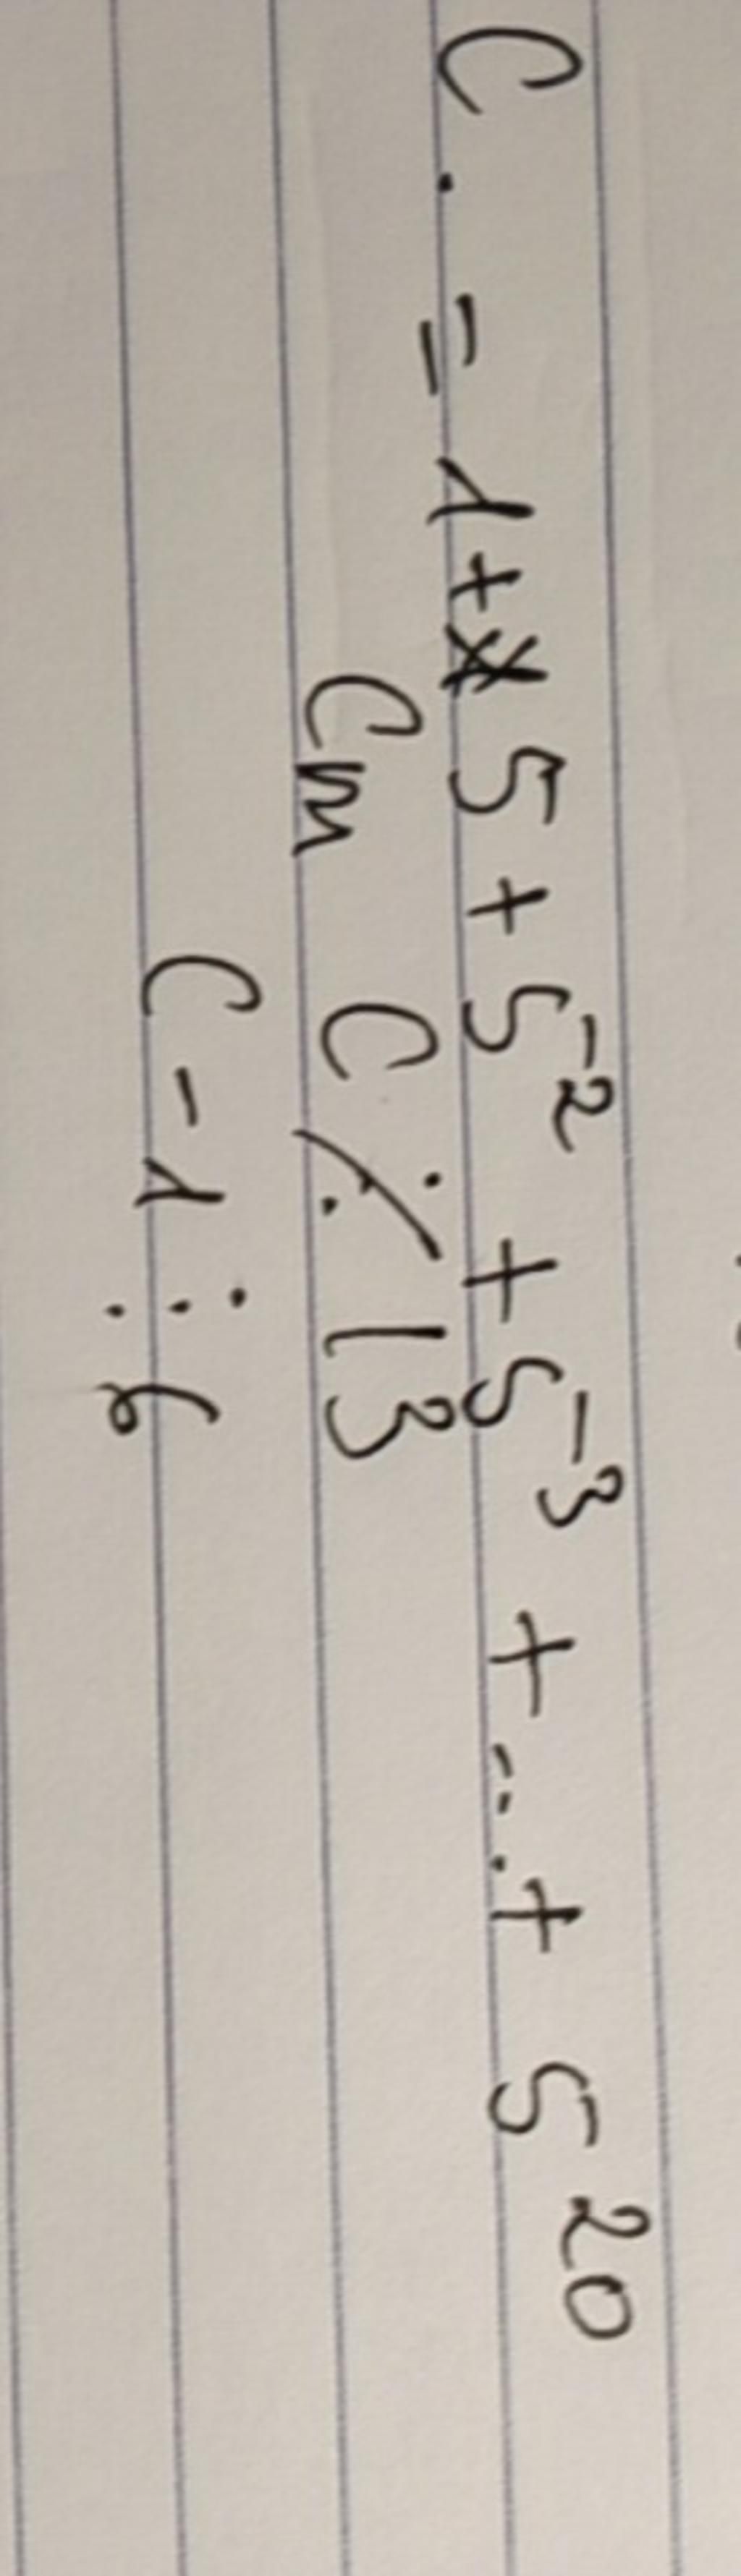 C = 1 + 5 + 5² + 5³ + ... + 5²⁰
Cm C ⋮̸ 13
C - 1 ⋮ 6